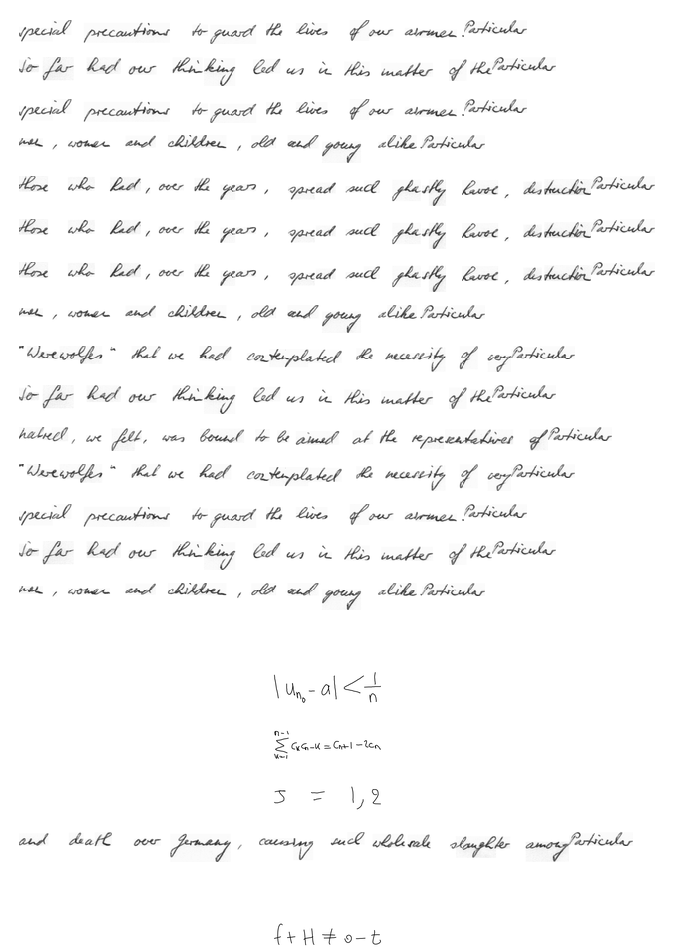 special precautions to guard the lives of our airmen. Particular
So far had our thinking led us in this matter of the Particular
special precautions to guard the lives of our airmen. Particular
men, women and children, old and young alike Particular
those who had, over the years, spread such ghastly havoc, destruction Particular
those who had, over the years, spread such ghastly havoc, destruction Particular
those who had, over the years, spread such ghastly havoc, destruction Particular
men, women and children, old and young alike Particular
"Werewolfes" that we had contemplated the necessity of very Particular
So far had our thinking led us in this matter of the Particular
hatred, we felt, was bound to be aimed at the representatives of Particular
"Werewolfes" that we had contemplated the necessity of very Particular
special precautions to guard the lives of our airmen. Particular
So far had our thinking led us in this matter of the Particular
men, women and children, old and young alike Particular
|u_{n_0} - a| < \frac{1}{n}
\sum_{k=1}^{n-1} c_k c_{n-k} = c_{n+1} - 2c_n
J = 1,2
and death over Germany, causing such wholesale slaughter among Particular
f + H ≠ 0 - t